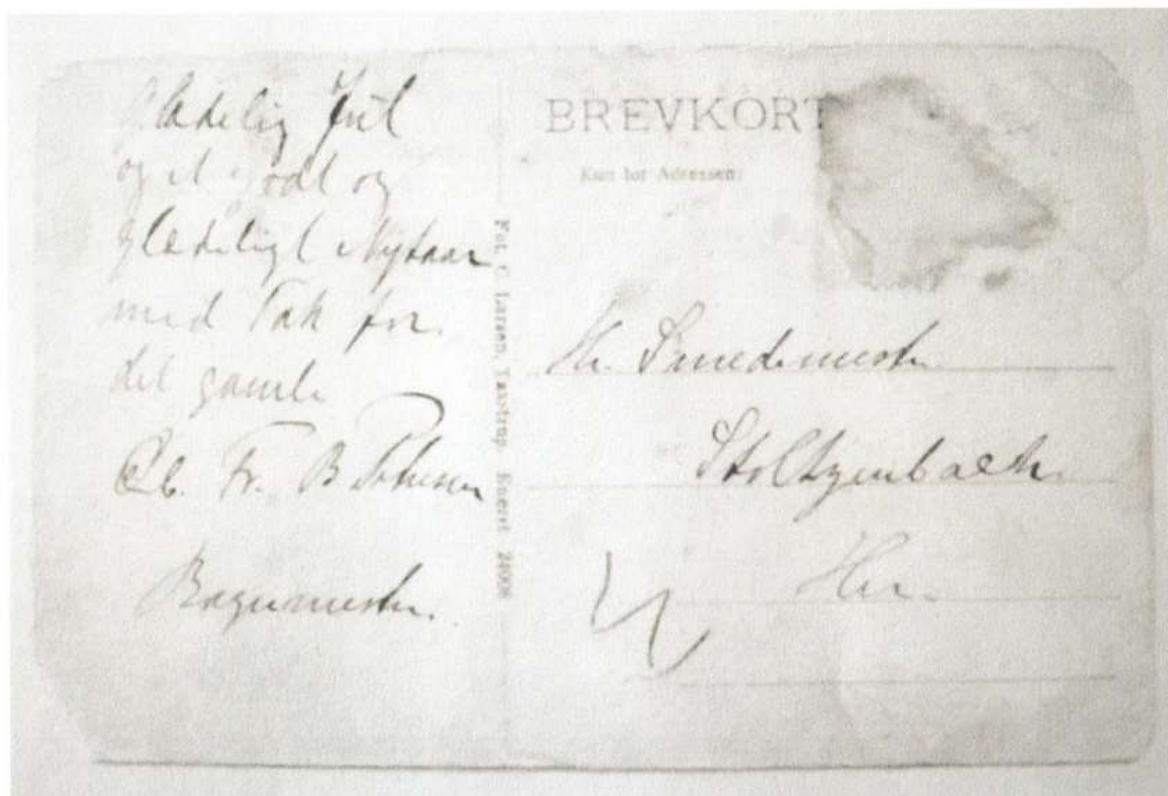 Glædelig Jul
og et Godt og
glædeligt Nytaar
med Tak for
det gamle
Fr. B Petersen
Bagermester.
Fot. C. Larsen, Taastrup. Eneret 24008
BREVKORT
Kun for Adressen.
Hr. Smedemester
Stoltzenbach
Her.